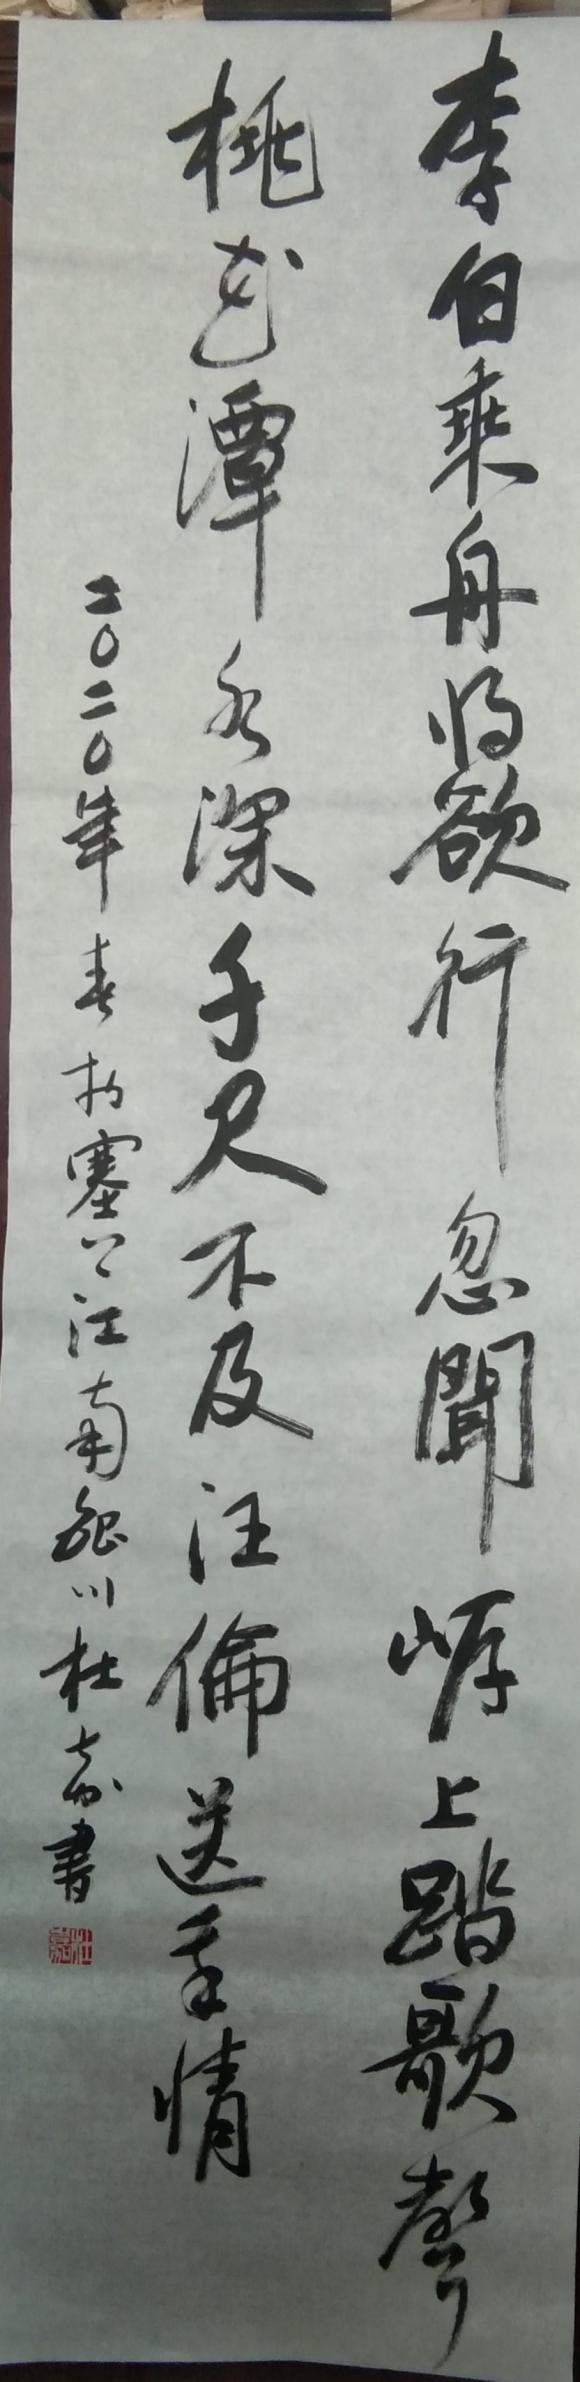 李白乘舟将欲行忽聞岸上踏歌聲
桃花潭水深千尺不及汪倫送我情
二〇二〇年春於塞上江南銀川杜嘉書
杜嘉